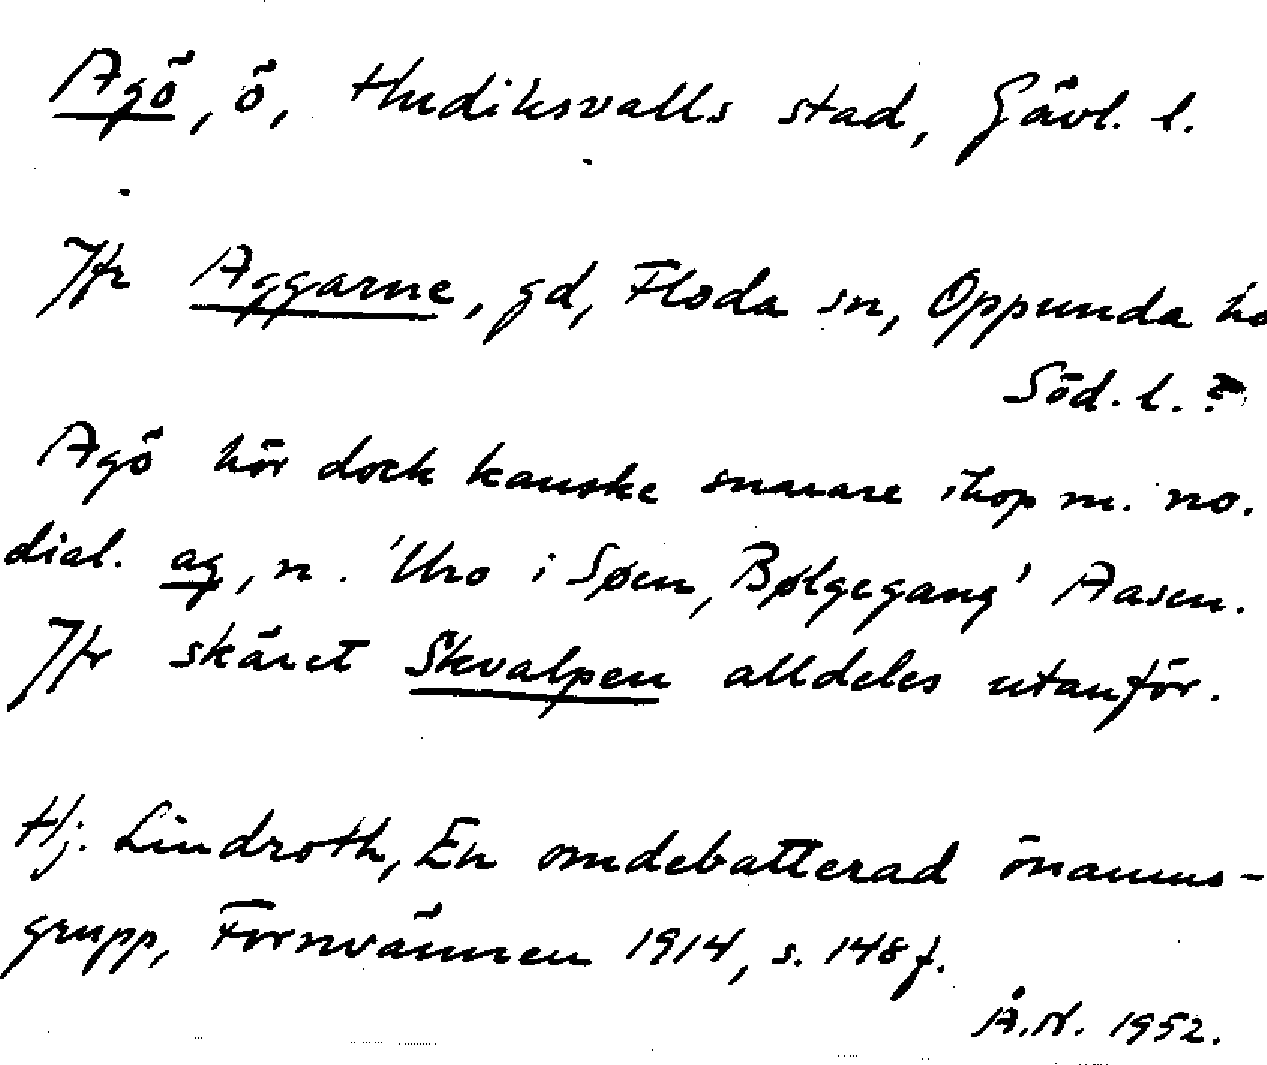 Agö, ö, Hudiksvalls stad, Gävl. l.
Jfr Aggarne, gd, Floda sn, Oppunda hd
Söd. l.?
Agö hör dock kanske snarare ihop m. no.
dial. ag, n. 'Uro i Søen, Bølgegang' Aasen.
Jfr skäret Skvalpen alldeles utanför.
Hj. Lindroth, En omdebatterad önamns-
grupp, Fornvännen 1914, s. 148 f.
Å.N. 1952.